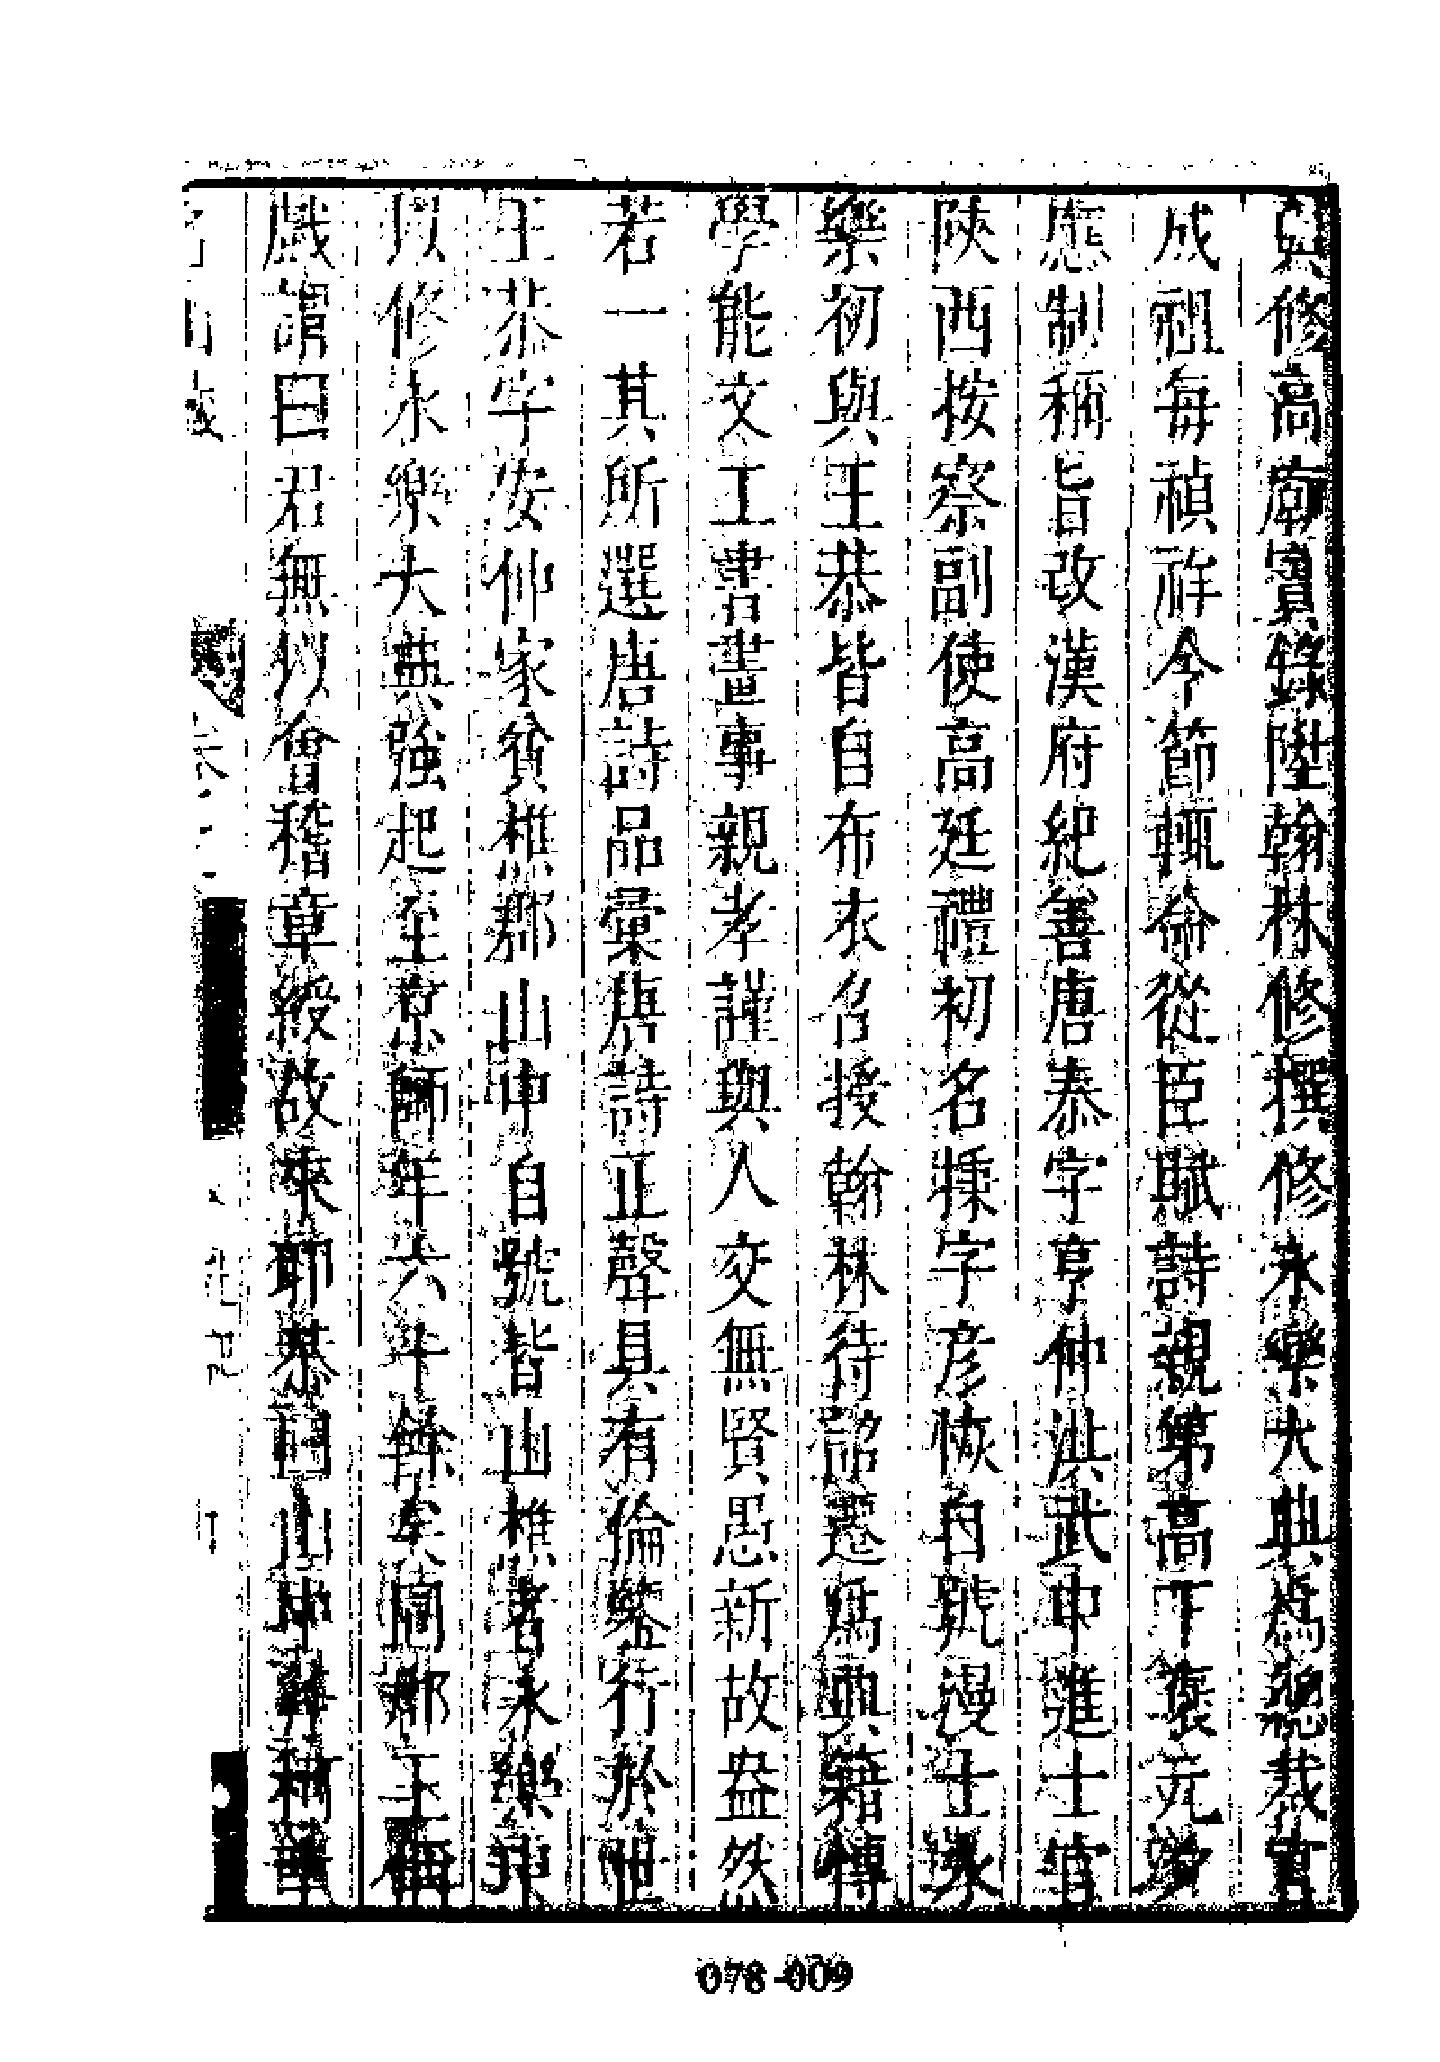 與修高廟實錄陞翰林修撰修永樂大典爲總裁官
成祖每禎祥令節輒命從臣賦詩親第高下褒元嘗
應制稱旨改漢府紀善唐泰字亨仲洪武中進士官
陝西按察副使高廷禮初名㮚字彥恢自號漫士永
樂初與王恭皆自布衣名授翰林待詔遷爲典籍博
學能文工書畫事親孝謹與人交無賢愚新故盎然
若一其所選唐詩品彙唐詩正聲具有倫鑒行於世
王恭字安仲家貧樵郡山中自號皆山樵者永樂中
以修永樂大典強起至京師年六十餘矣同郡王偁
戲謂曰君無似會稽章綬故來耶恭曰山中斧柯
078-009